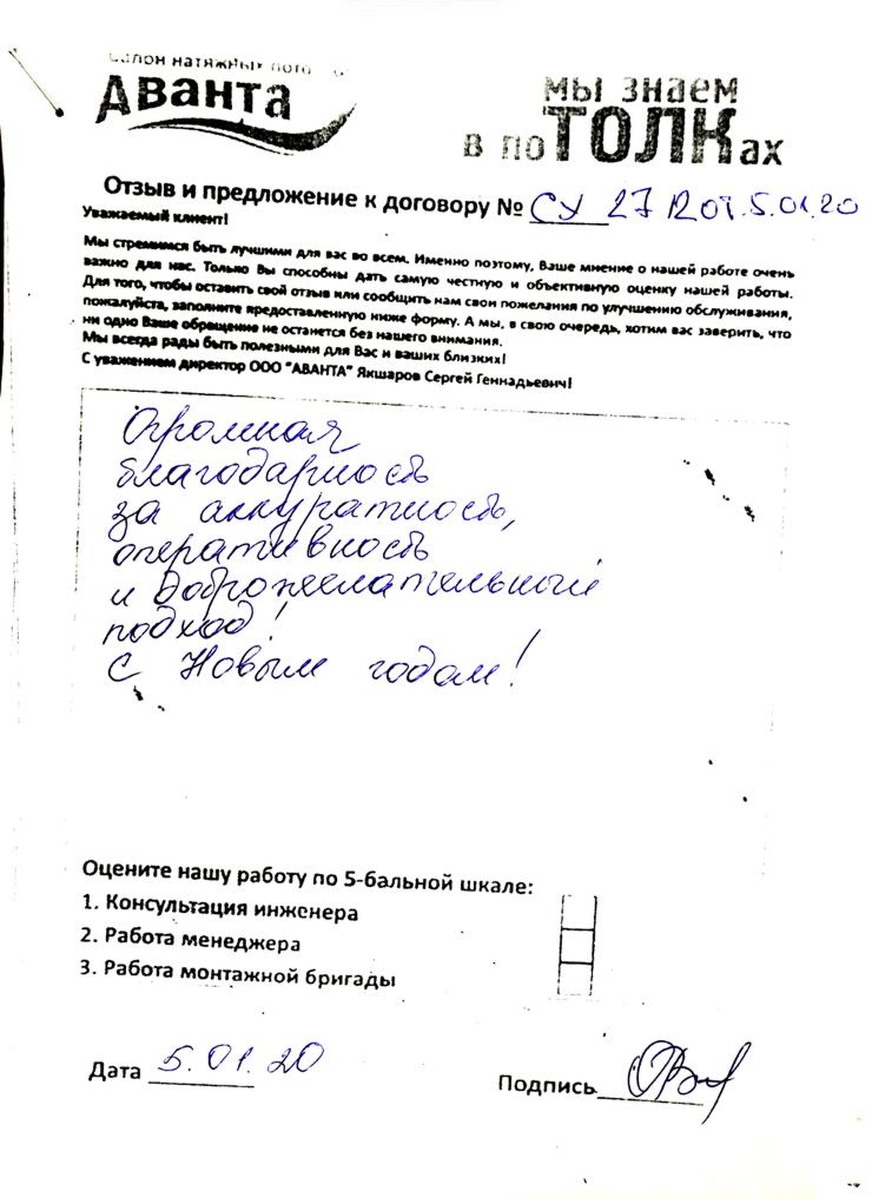 Салон натяжных пото
Аванта
мы знаем
в поТОЛКах
Отзыв и предложение к договору № СУ 27 12 от 5.01.20
Уважаемый клиент!
Мы стремимся быть лучшими для вас во всем. Именно поэтому, Ваше мнение о нашей работе очень
важно для нас. Только Вы способны дать самую честную и объективную оценку нашей работы.
Для того, чтобы оставить свой отзыв или сообщить нам свои пожелания по улучшению обслуживания,
пожалуйста, заполните предоставленную ниже форму. А мы, в свою очередь, хотим вас заверить, что
ни одно Ваше обращение не останется без нашего внимания.
Мы всегда рады быть полезными для Вас и ваших близких!
С уважением директор ООО "АВАНТА" Якшаров Сергей Геннадьевич!
Огромная
благодарность
за аккуратность,
оперативность
и доброжелательный
подход!
С Новым годом!
Оцените нашу работу по 5-бальной шкале:
1. Консультация инженера
2. Работа менеджера
3. Работа монтажной бригады
Дата 5.01.20
Подпись